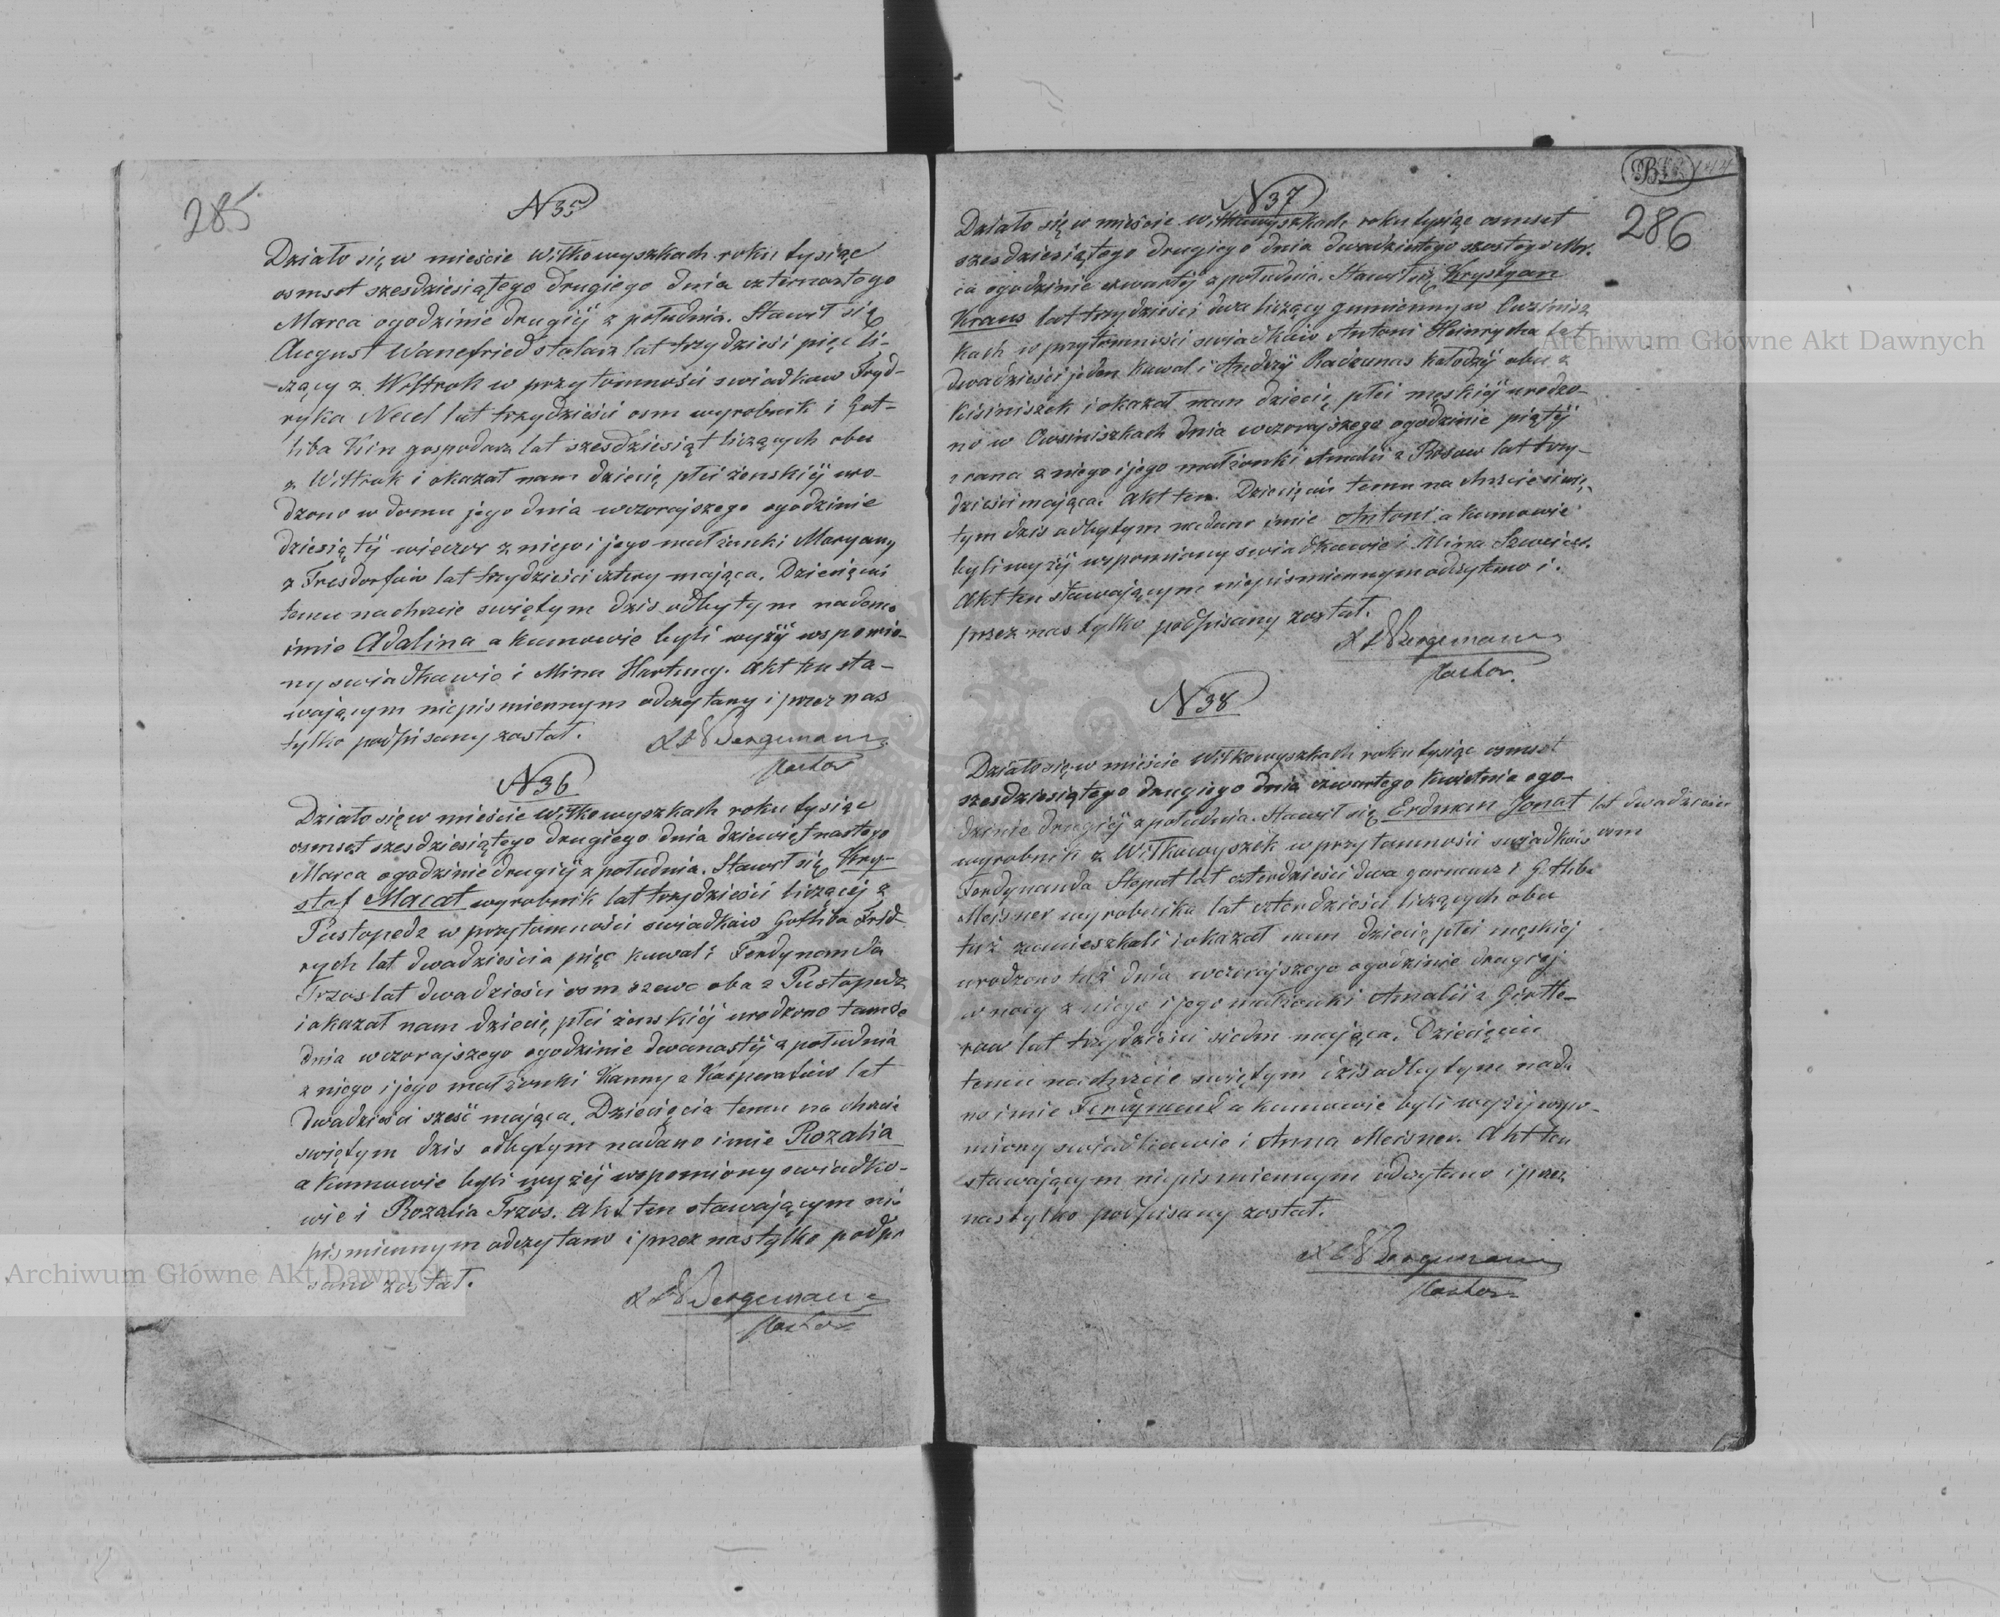 285
N 35
Działo się w mieście Wiłkowyszkach roku tysiąc
osmset szesdziesiątego drugiego dnia czternastego
Marca ogodzinie drugiij z południa. Stawił się
August Wanefried stolarz lat trzydzieści pięć li-
szący z Wiłtrak w przytomności swiadkow Fryd-
ryka Neel lat trzydzieści osm wyrobnik i Got-
liba Kin gospodarz lat szesdziesiąt liczących obu
z Wiłtrak i okazał nam dziecię płci żenskiij uro-
dzono w domu jego dnia wczorajszego ogodzinie
dziesiątij wieczor z niego i jego małżonki Maryany
z Tresdorfów lat trzydzieści cztery mająca. Dziecięciu
temu na chrzcie swiętym dzis odbytym nadano
imie Adalina a kumowie byli wyżij wspomio-
ny swiadkawie i Mina Hartung. Akt ten sta-
wającym niepismiennym odczytany i przez nas
tylko podpisany został.
Bergemann
Pastor
N 36
Działo się w mieście Wiłkowyszkach roku tysiąc
osmset szesdziesiątego drugiego dnia dziewiętnastego
Marca ogodzinie drugiij z południa. Stawił się Kry-
stof Macat wyrobnik lat trzydzieści liczącej z
Pustopedz w przytomności swiadków Gotliba Frid-
rych lat dwadzieścia pięc kuwal i Ferdynanda
Trzos lat dwadzieści osm szewc oba z Pustopedz
i okazał nam dziecię płci żenskiéj urodzono tamże
dnia wczorajszego ogodzinie dwanastij z południa
z niego i jego małżonki Hanny z Kasperatów lat
dwadzieści sześć mająca. Dziecięcia temu na chrzcie
swiętym dzis odbytym nadano imie Rozalia
a kumowie byli wyżéj wspomiony swiadko-
wie i Rozalia Trzos. Akt ten stawającym nie
pismiennym odczytano i przez nas tylko podpi
sano został.
Bergemann
Pastor
286
N 37
Działo się w mieście Wiłkowyszkach roku tysiąc osmset
szesdziesiątego drugiego dnia dwadziestego szostego Mar.
ca ogodzinie czwartéj z południa. Stawił się Krystyan
Kraus lat trzydzieści dwa liczący gumienny w
kach w przytomności swiadków Antoni Heinrycha lat
dwadzieści jeden kuwal i Andrzij Radzunas kołodzij obu z
i okazał nam dziecię płci męskiéj urodzo-
no w Owsiniszkach dnia wczorajszego ogodzinie piątéj
zrana z niego i jego małżonki Amalii z Rosow lat trzy-
dzieści mająca. Akt ten. Dziecięciu temu na chrzcie swię-
tym dzis odbytym nadano imie Antoni a kumowie
byli wyżij wspomiony swiadkawie i Mina
Akt ten stawającym niepismiennym odczytano i
przez nas tylko podpisany został.
Bergemann
Pastor.
N 38
Działo się w mieście Wiłkowyszkach roku tysiąc osmset
szesdziesiątego drugiego dnia czwartego kwietnia ogo-
dzinie drugiéj z południa. Stawił się Erdman Jonat lat dwadzieści
osm
wyrobnik z Wiłkowyszek w przytomności swiadków
Ferdynanda Stepat lat czterdzieści dwa garncarz i Gotliba
Meisner wyrobnika lat czterdzieści liczących obu
tuż zamieszkali i okazał nam dziecię płci męskiéj
urodzono tuż dnia wczorajszego ogodzinie drugiej
w nocy z niego i jego małżonki Amalii z Girtle-
row lat trzydzieści siedm mająca. Dziecięciu
temu na chrzcie swiętym dzis odbytym nada
no imie Ferdynand a kumowie byli wyżij wspo-
miony swiadkawie i Anna Meisner. Akt ten
stawającym niepismiennym odczytano i przez
nas tylko podpisany został.
Bergemann
Pastor
Archiwum Główne Akt Dawnych
Archiwum Główne Akt Dawnych